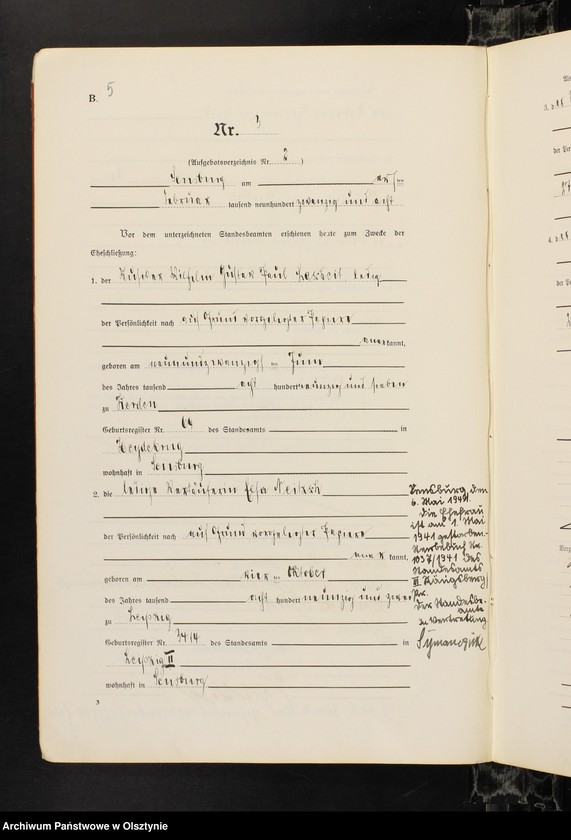 B. 5
Nr. 3
(Aufgebotsverzeichnis Nr. 2)
Sensburg am acht ten
Februar tausend neunhundert zwanzig und acht
Vor dem unterzeichneten Standesbeamten erschienen heute zum Zwecke der
Eheschließung:
1. der Küster Wilhelm Gustav Paul ledig
der Persönlichkeit nach auf Grund vorgelegter Papiere
anerkannt,
geboren am neunundzwanzigsten Juni
des Jahres tausend acht hundert neunzig und sieben
zu
Geburtsregister Nr. 69 des Standesamts in
Heydekrug
wohnhaft in Sensburg
2. die ledige Verkäuferin Elsa
der Persönlichkeit nach auf Grund vorgelegter Papiere
anerkannt,
geboren am vierten Oktober
des Jahres tausend acht hundert neunzig und zwei
zu Leipzig
Geburtsregister Nr. 3414 des Standesamts in
Leipzig II
wohnhaft in Sensburg
3
Sensburg, den
6. Mai 1941.
Die Ehefrau
ist am 1. Mai
1941 gestorben.
Sterbebuch Nr.
1037/1941 des
Standesamts
II Königsberg/
Pr.
Der Standesbe-
amte
In Vertretung
Archiwum Państwowe w Olsztynie